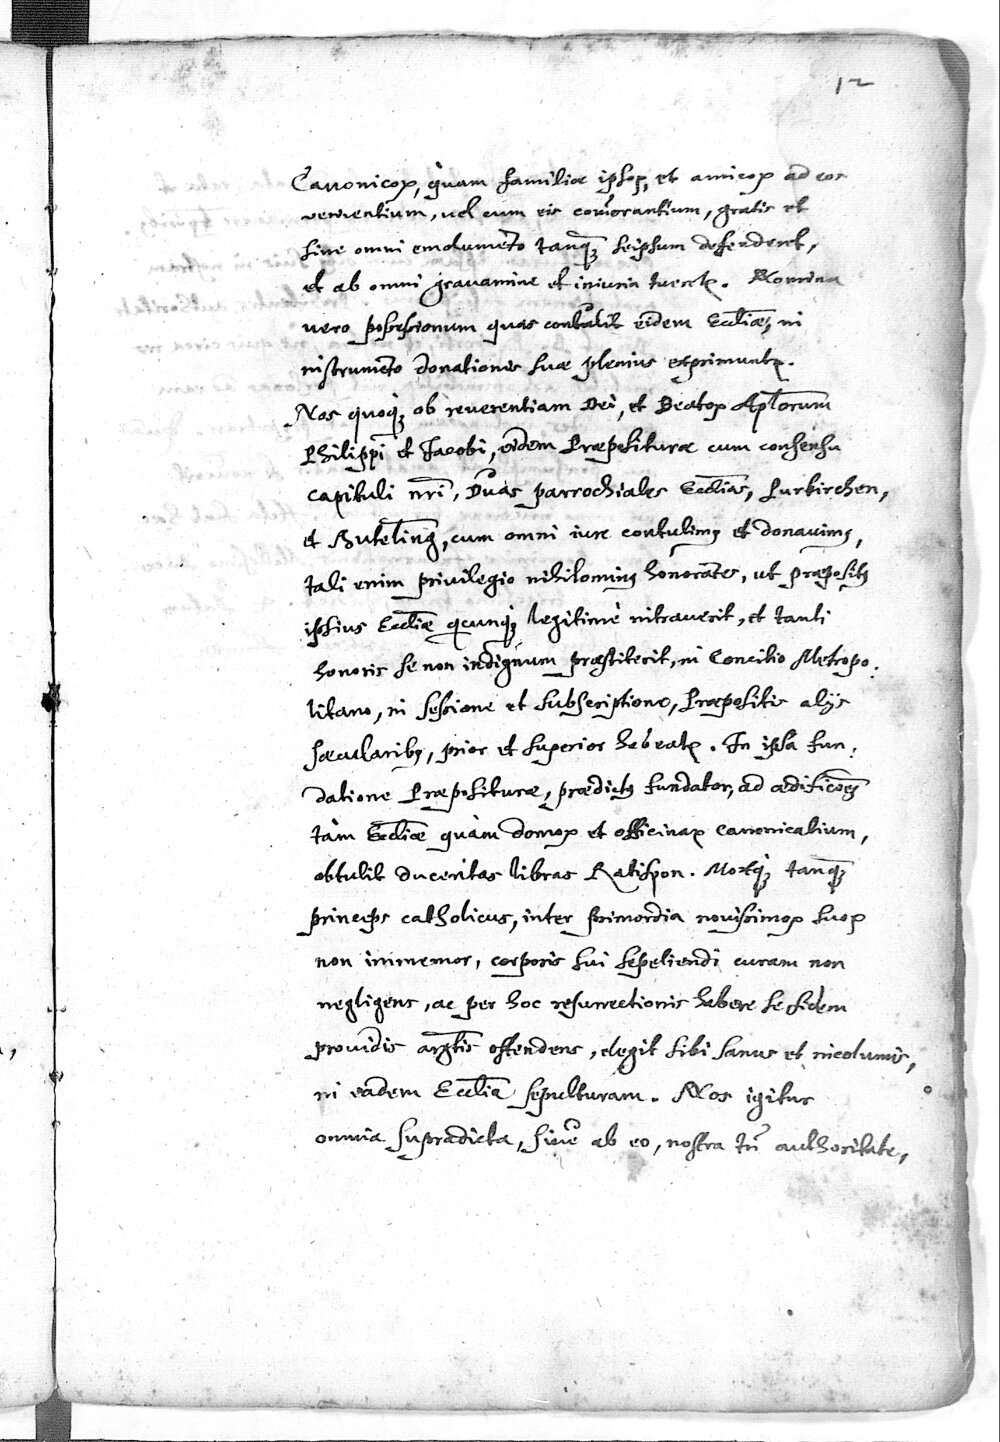 12
Canonicoꝝ, quàm familiæ ipsoꝝ, et amicoꝝ ad eos
venientium, vel cum eis com̃orantium, gratis et
sine omni emolumẽto tanq̃ꝫ seipsum defenderet,
et ab omni gravamine et iniuria tueretꝛ. Nomina
vero possessionum quas contulit eidem Eccl̃iæ, in
instrumẽto donationis suæ plenius exprimuntꝛ.
Nos quoqꝫ ob reverentiam Dei, et Beatoꝝ Apl̃orum
Philippi et Jacobi, eidem Præpositura cum consensu
capituli nr̃i, Duas parrochiales Eccl̃ias, Purkirchen,
et Buteling, cum omni iure contulimꝰ et donavimꝰ,
tali enim privilegio nihilominꝰ honorãtes, ut præpositꝰ
ipsius Eccl̃iæ qicunqꝫ legitimè intraverit, et tanti
honoris se non indignum præstiterit, in Concilio Metropo:
litano, in sessione et subscriptione, Præpositis alijs
sæcularibꝰ, prior et superior habeatꝛ. In ipsa fun:
datione Præposituræ, prædictꝰ fundator, ad ædificões
tàm Eccl̃iæ quàm domoꝝ et officinaꝝ canonicalium,
obtulit ducentas libras Ratispon. Morẽqꝫ tanq̃ꝫ
princeps catholicus, inter primordia novissimoꝝ suoꝝ
non immemor, corporis sui sepeliendi curam non
negligens, ac per hoc resurrectionis habere se fidem
providis argt̃is ostendens, elegit sibi sanus et incolumis,
in eadem Eccl̃ia sepulturam. Nos igitur
omnia supradicta, sive ab eo, nostra tñ authoritate,